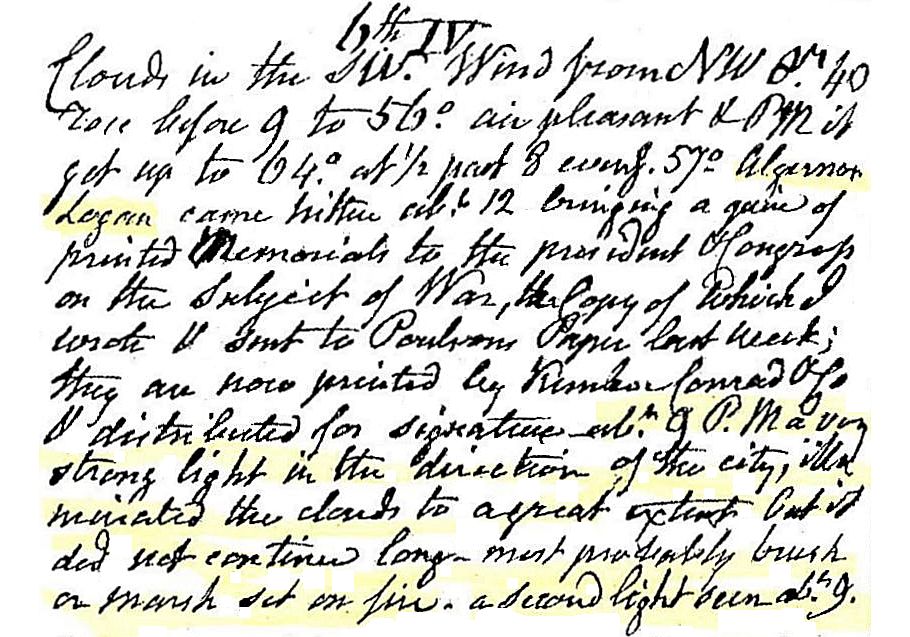 6th IV
Clouds in the SW. Wind from NW &.r 40
rose before 9 to 56° air pleasant & PM it
got up to 64° at ½ past 8 eveng. 57° Algernon
Logan came hither abt. 12 bringing a quire of
printed Memorials to the president & Congress
on the Subject of War, the Copy of Which I
wrote & sent to Poulsons Paper last week;
they are now printed by Kimber Conrad & Co
& distributed for signature abt. 9 P.M a very
strong light in the direction of the city, illu
minated the clouds to a great extent but it
did not continue long - most probably brush
or marsh set on fire - a second light seen abt. 9.